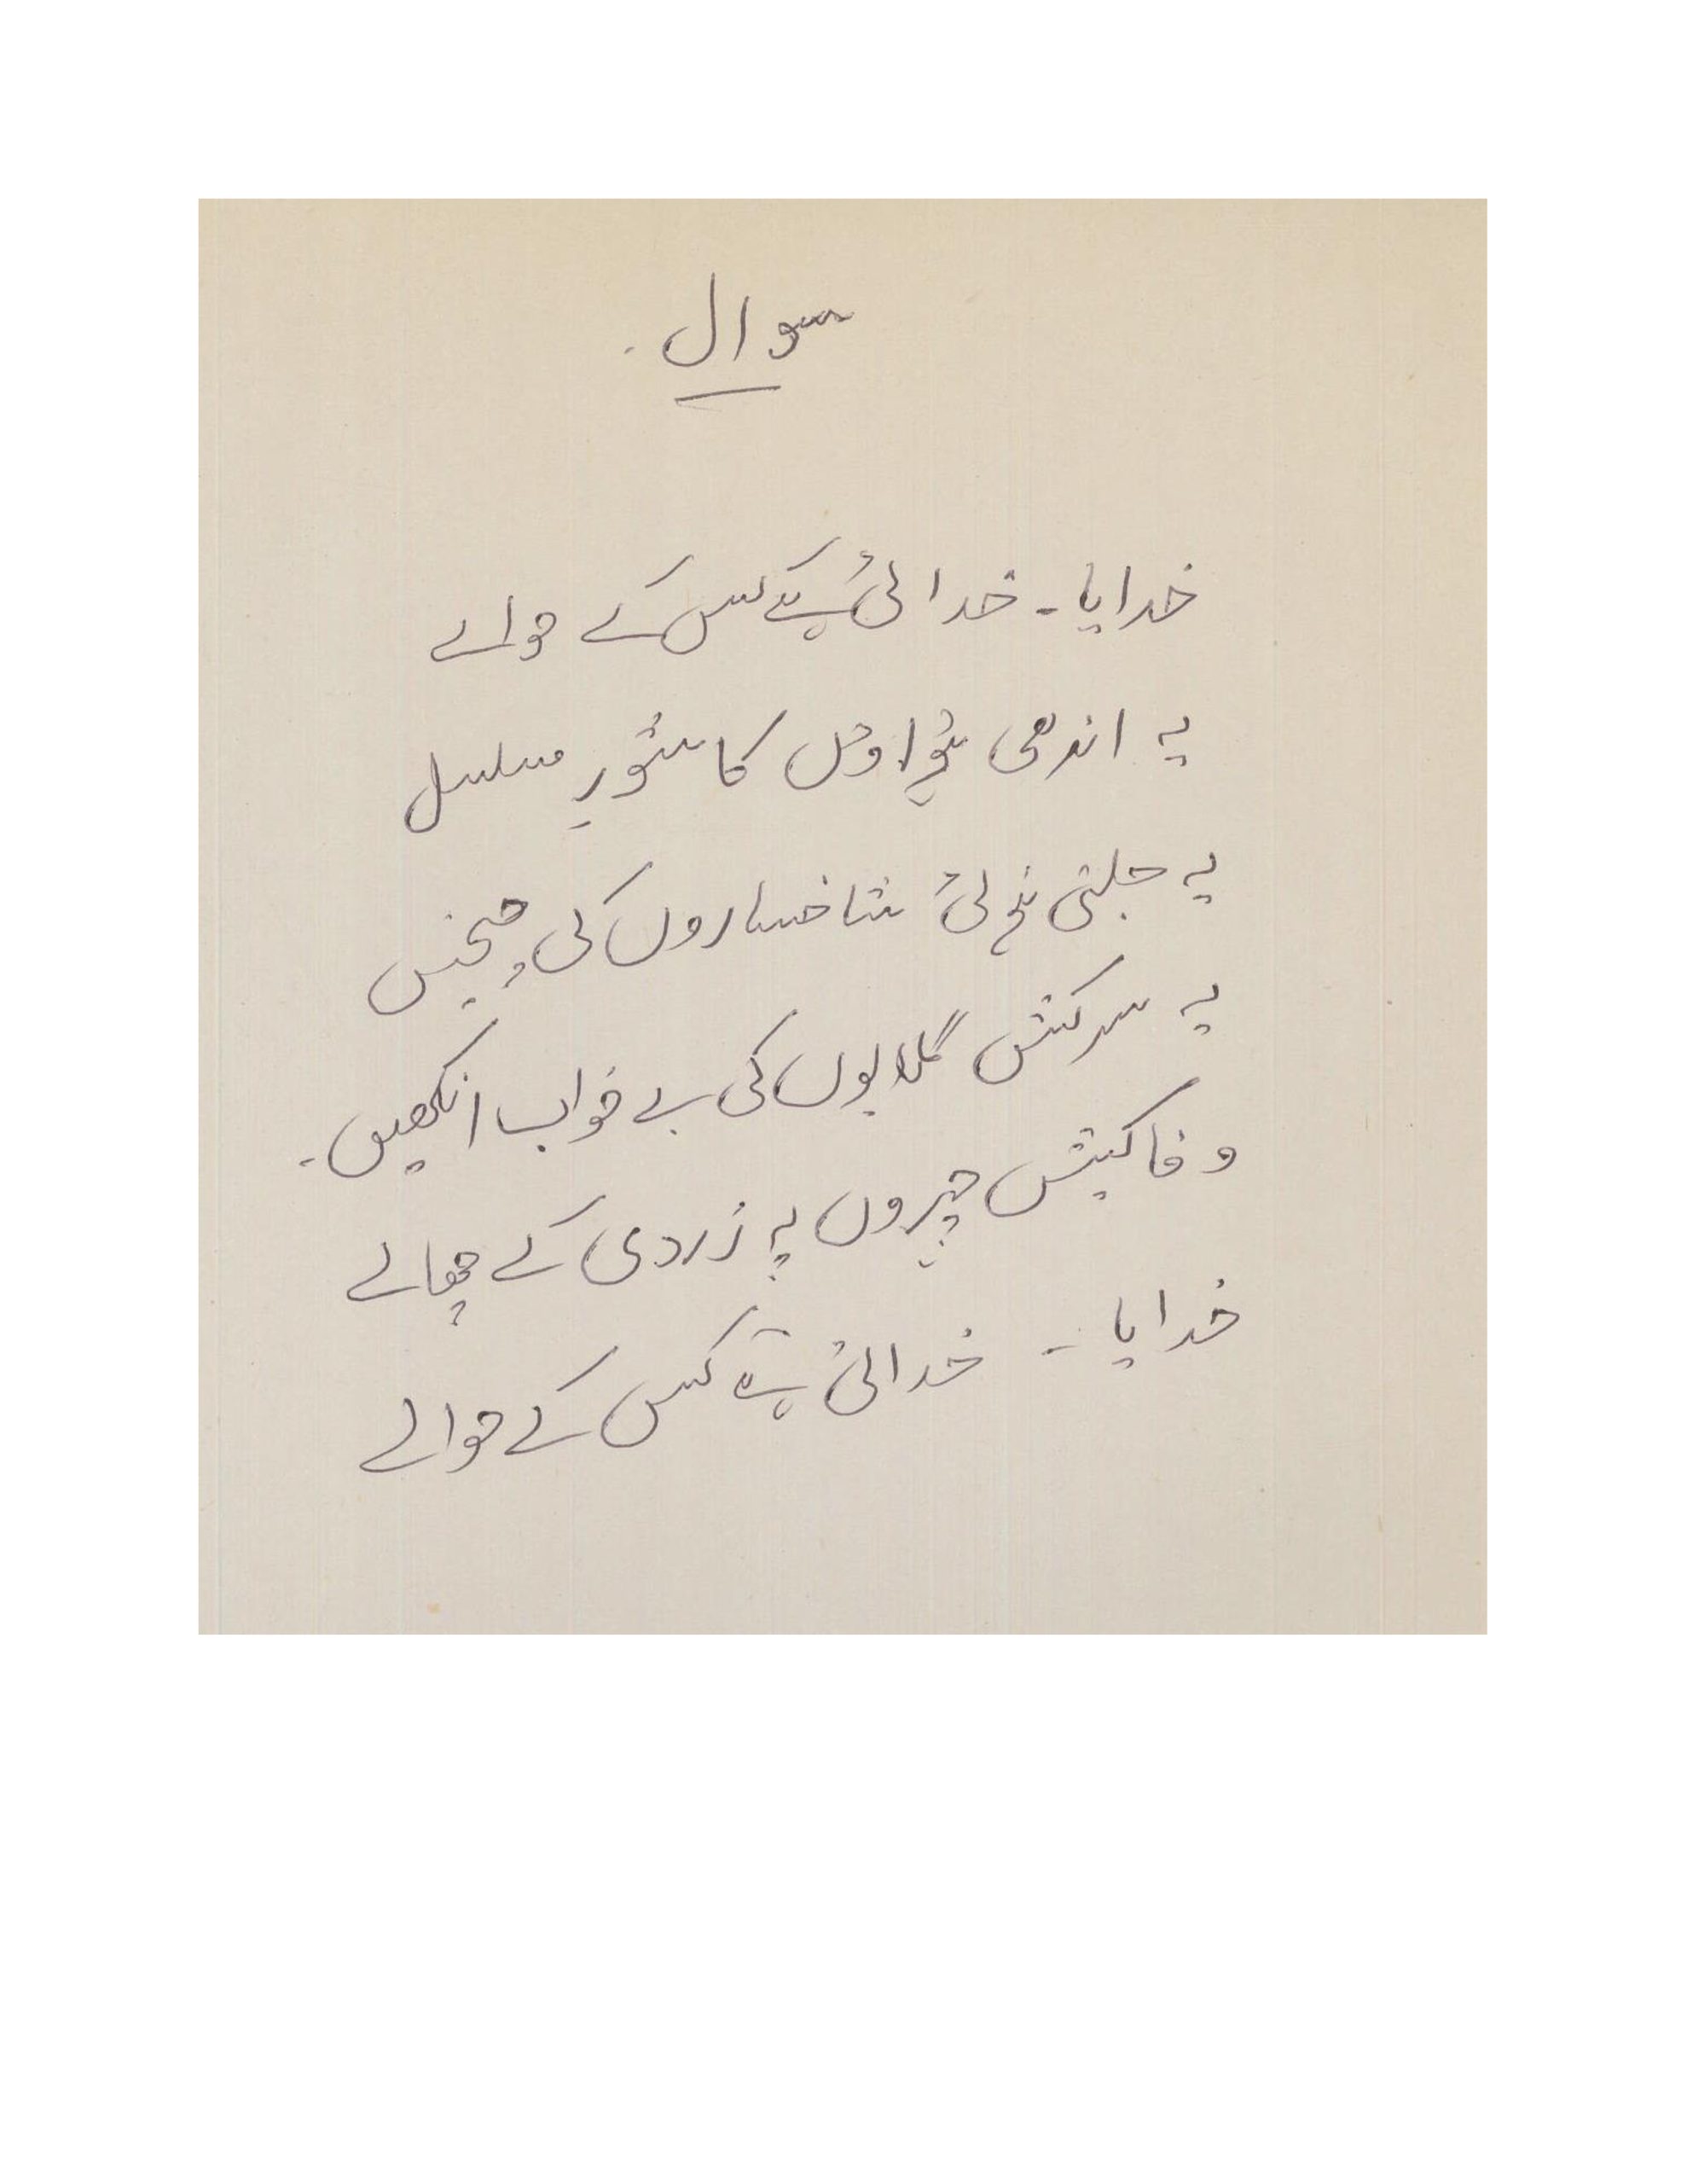 سوال
خدایا۔ خدائی ہے کس کے حوالے
یہ اندھی ہواوں کا شورِ مسلسل
یہ جلتی ہوئی شاخساروں کی چیخیں
یہ سرکش گلابوں کی بے خواب انکھیں۔
وفا کیش چہروں پہ زردی کے چھالے
خدایا۔ خدائی ہے کس کے حوالے